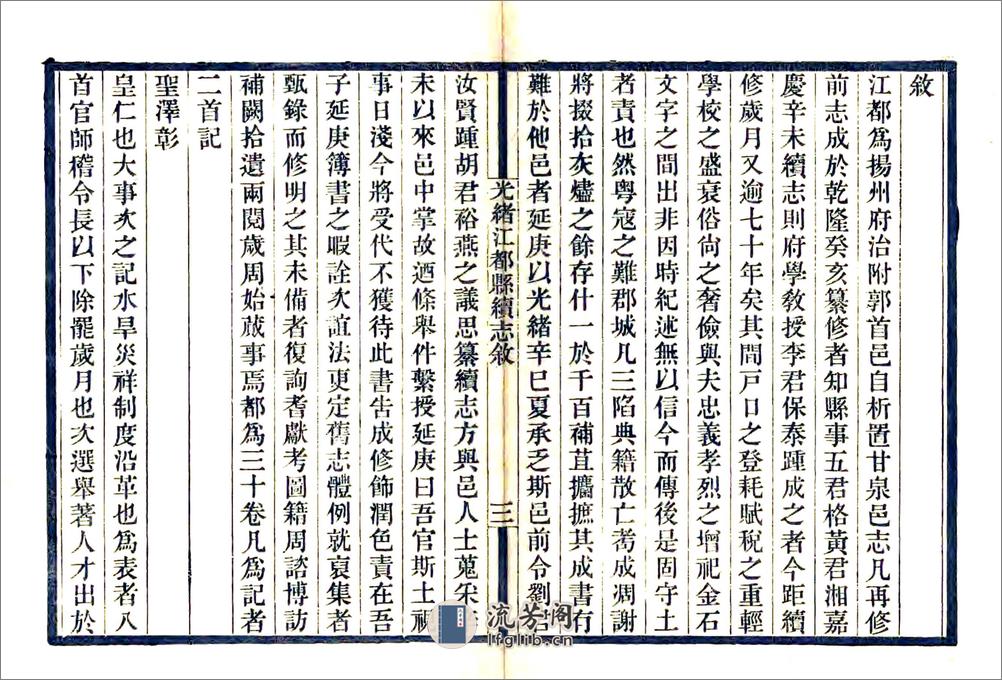 敘
江都爲揚州府治附郭首邑自析置甘泉邑志凡再修
前志成於乾隆癸亥纂修者知縣事五君格黃君湘嘉
慶辛未續志則府學敎授李君保泰踵成之者今距續
修歲月又逾七十年矣其間戶口之登耗賦稅之重輕
學校之盛衰俗尙之奢儉與夫忠義孝烈之增祀金石
文字之間出非因時紀述無以信今而傳後是固守土
者責也然粤寇之難郡城凡三陷典籍散亡耇成凋謝
將掇拾灰燼之餘存什一於千百補苴攟摭其成書有
難於他邑者延庚以光緒辛巳夏承乏斯邑前令劉君
光緒江都縣續志敘
三
汝賢踵胡君裕燕之議思纂續志方與邑人士蒐采
未以來邑中掌故迺條舉件繫授延庚曰吾官斯土視
事日淺今將受代不獲待此書告成修飾潤色責在吾
子延庚簿書之暇詮次誼法更定舊志體例就裒集者
甄錄而修明之其未備者復詢耆獻考圖籍周諮博訪
補闕拾遺兩閱歲周始蕆事焉都爲三十卷凡爲記者
二首記
聖澤彰
皇仁也大事次之記水旱災祥制度沿革也爲表者八
首官師稽令長以下除罷歲月也次選舉著人才出於
流芳阁
lfglib.cn